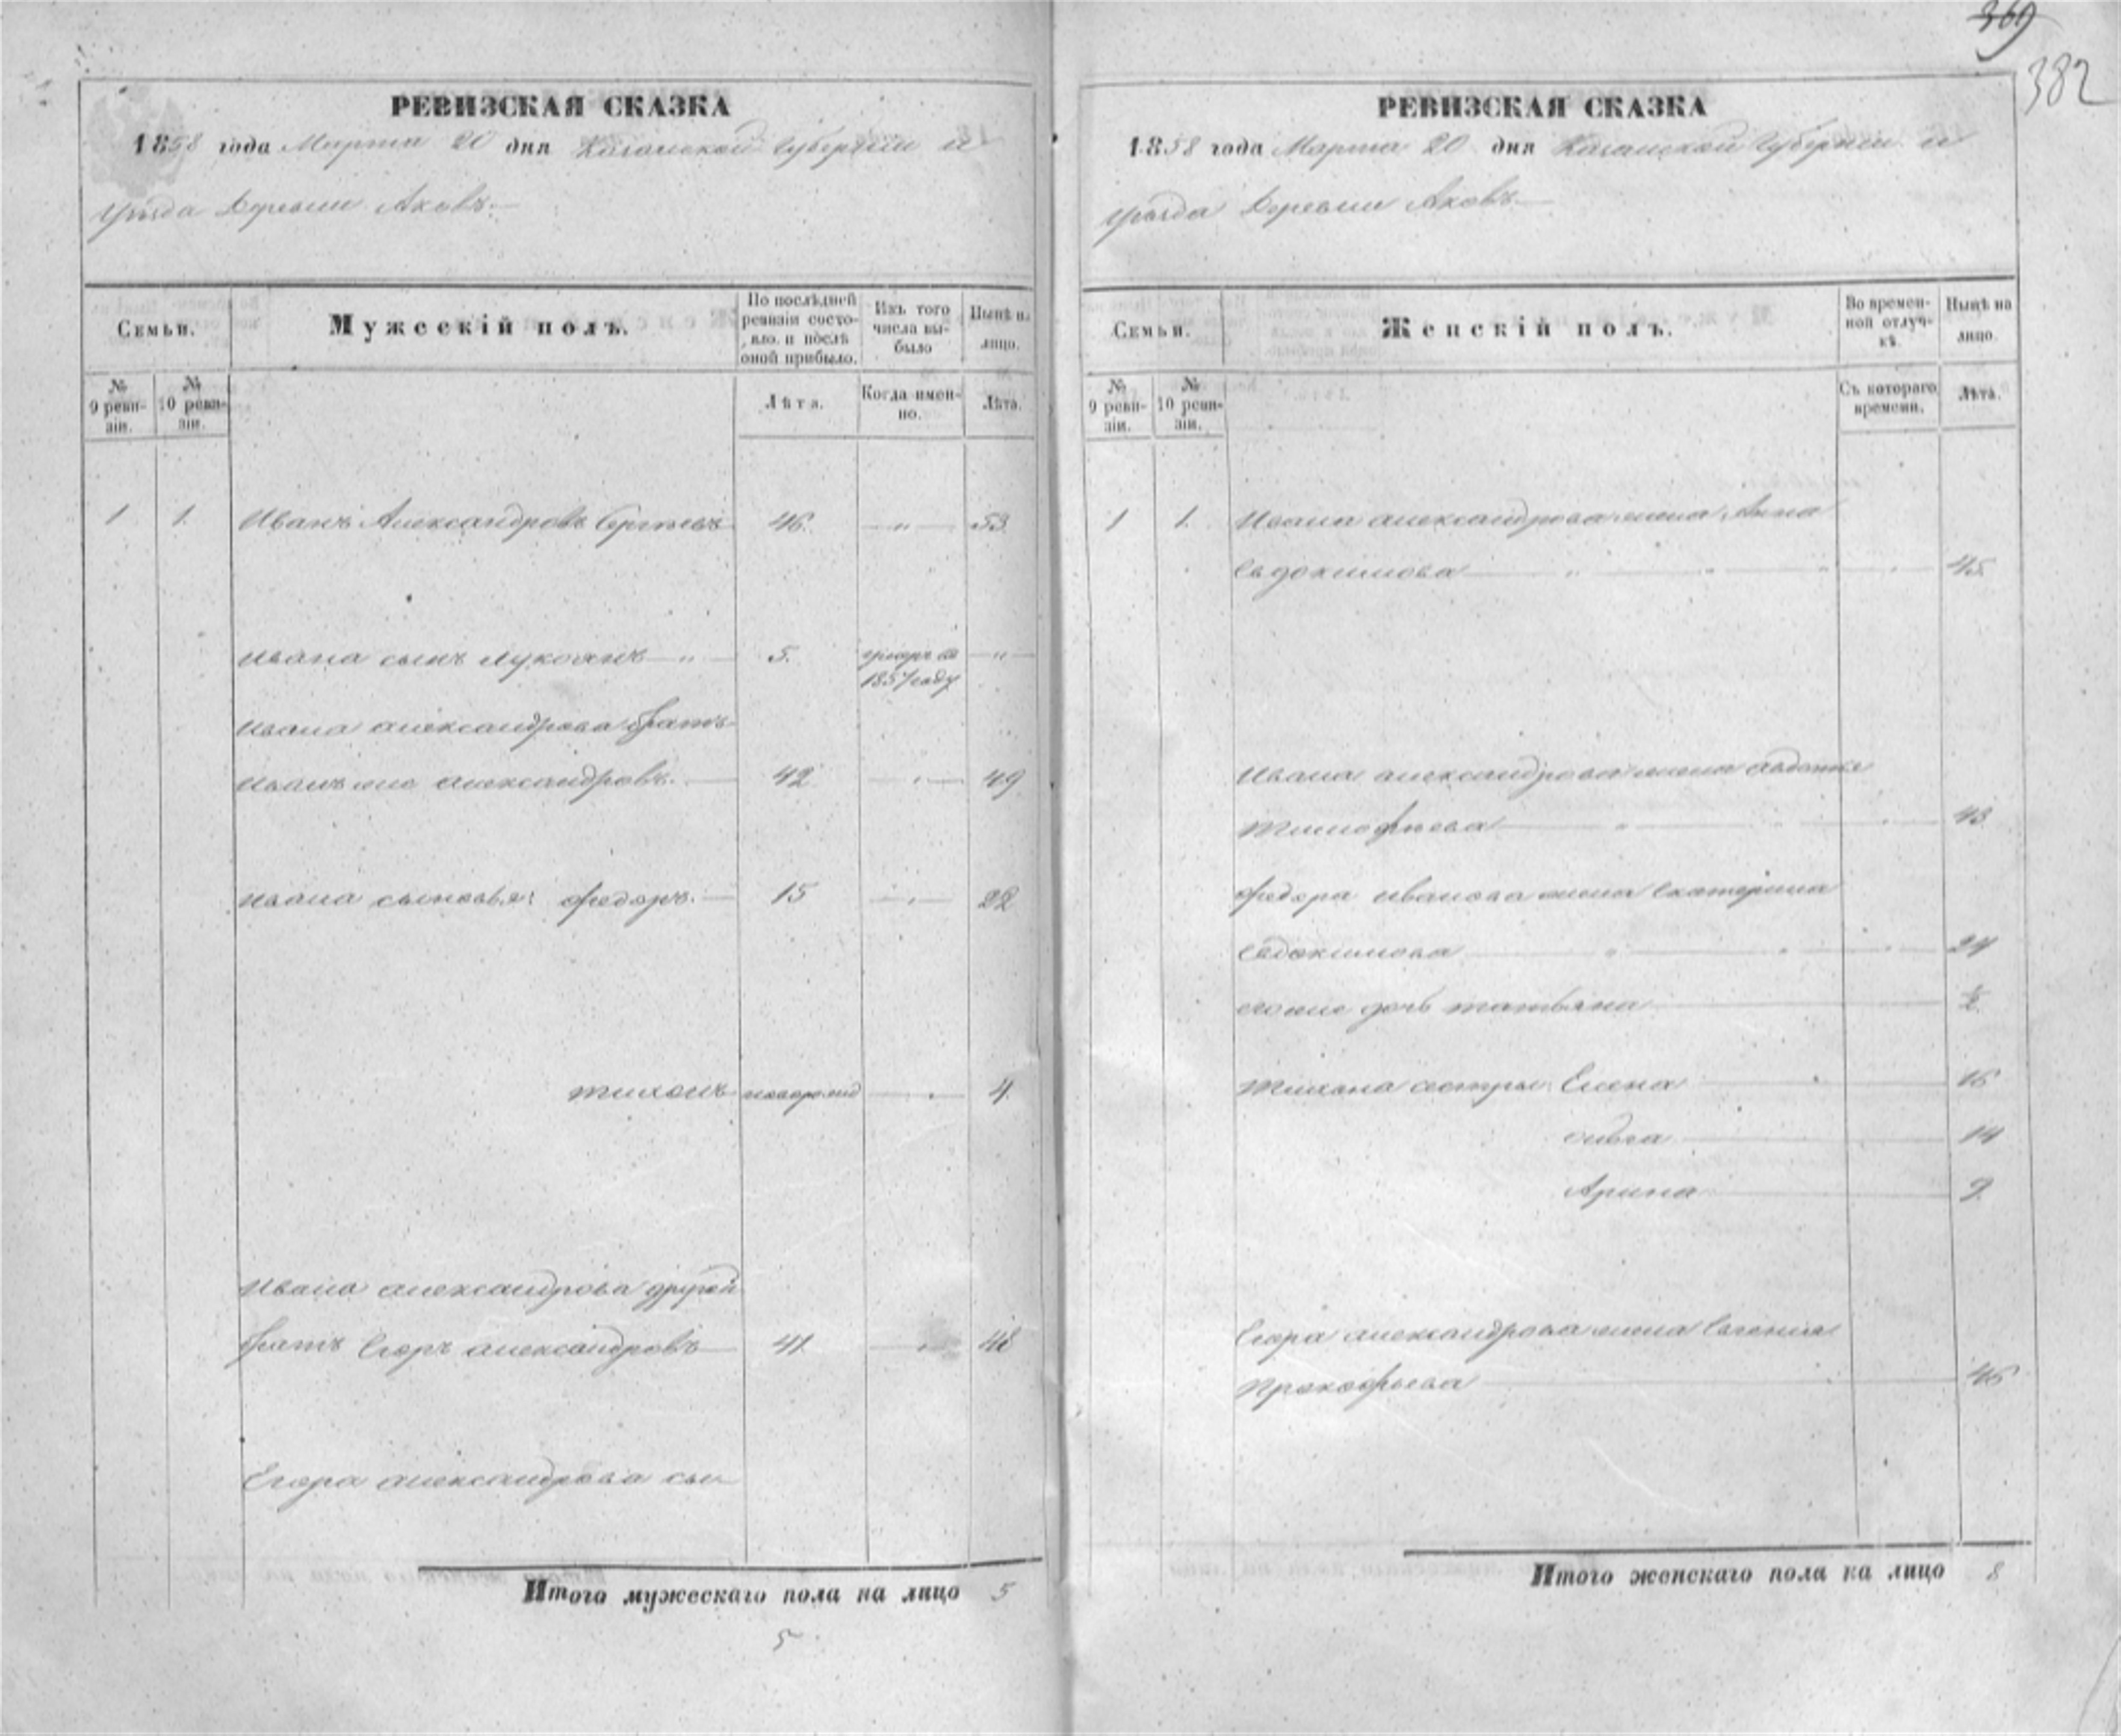 369
382
РЕВИЗСКАЯ СКАЗКА
1858 года Марта 20 дня Казанской Губернии и
уѣзда Деревни Аковъ.
Семьи.
Мужескій полъ.
По послѣдней ревизіи состояло и послѣ оной прибыло.
Изъ того числа выбыло
Нынѣ на лицо.
№ 9 ревизіи.
№ 10 ревизіи.
Лѣта.
Когда именно.
Лѣта.
1 1. Иванъ Александровъ Сергѣевъ 46. — „ — 53.
Ивана сынъ Лукоянъ — „ — 5. умеръ въ — „ —
1857 году
Ивана Александрова братъ
Иванъ же Александровъ. — 42 — „ — 49
Ивана сыновья: Федоръ. — 15 — „ — 22
Тихонъ новорожд — 4.
Ивана Александрова другой
братъ Егоръ Александровъ — 41. — „ — 48
Егора Александрова сын
Итого мужескаго пола на лицо 5
5
РЕВИЗСКАЯ СКАЗКА
1858 года Марта 20 дня Казанской Губернии и
уѣзда Деревни Аковъ
Семьи.
Женскій полъ.
Во временной отлучкѣ.
Нынѣ на лицо.
№ 9 ревизіи.
№ 10 ревизіи.
Съ котораго времени.
Лѣта.
1 1. Ивана Александрова жена Анна
Евдокимова — 45.
Ивана Александрова жена Авдотья
Тимофѣева — 43.
Федора Иванова жена Екатерина
Евдокимова — 24
его же дочь Татьяна — ½.
Тихона сестры: Елена — 16
Ольга — 14
Арина — 9.
Егора Александрова жена Евгения
Прокофьева — 46
Итого женскаго пола на лицо 8